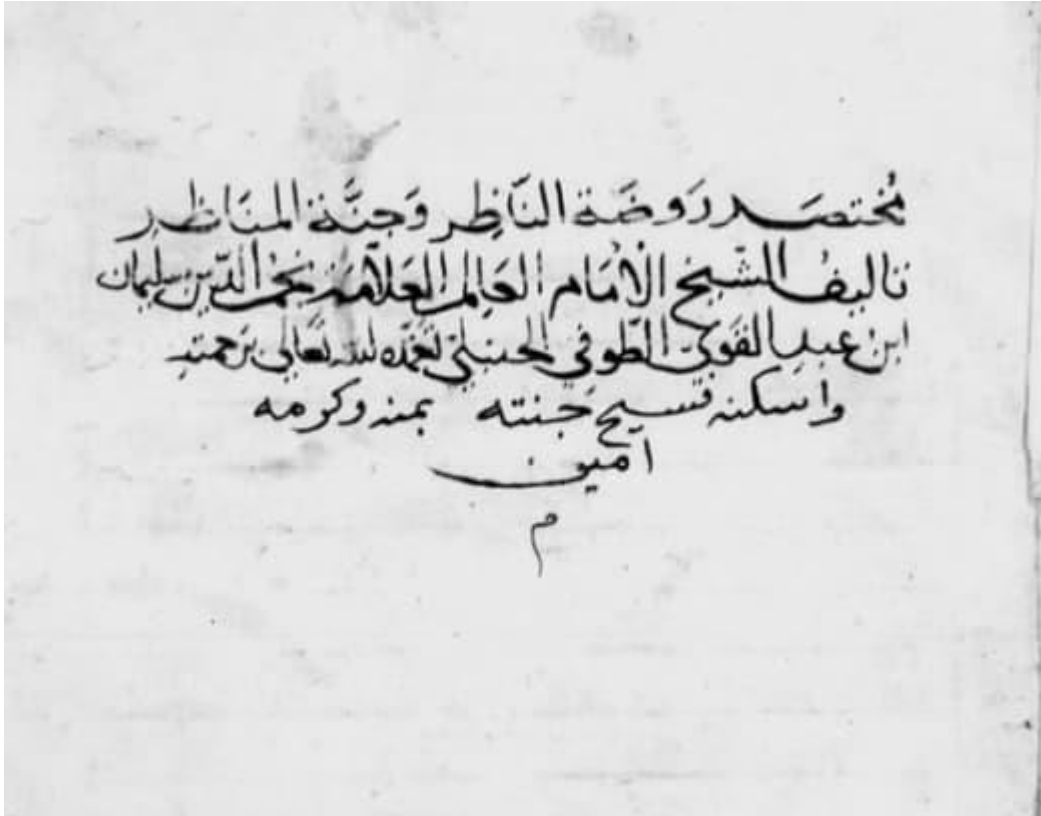 مُختصر رَوضَة النَّاظِر وَجنَّة المنَاظر
تاليفُ الشّيخ الاُمَام العَالِم العَلاّمَة نجم الدّين سليمان
ابن عَبد القَوي الطّوفي الحنبَلي تغمّده الله تعَالى برَحمته
واسكنه فسيح جَنته بمنه وكرمه
امين
م